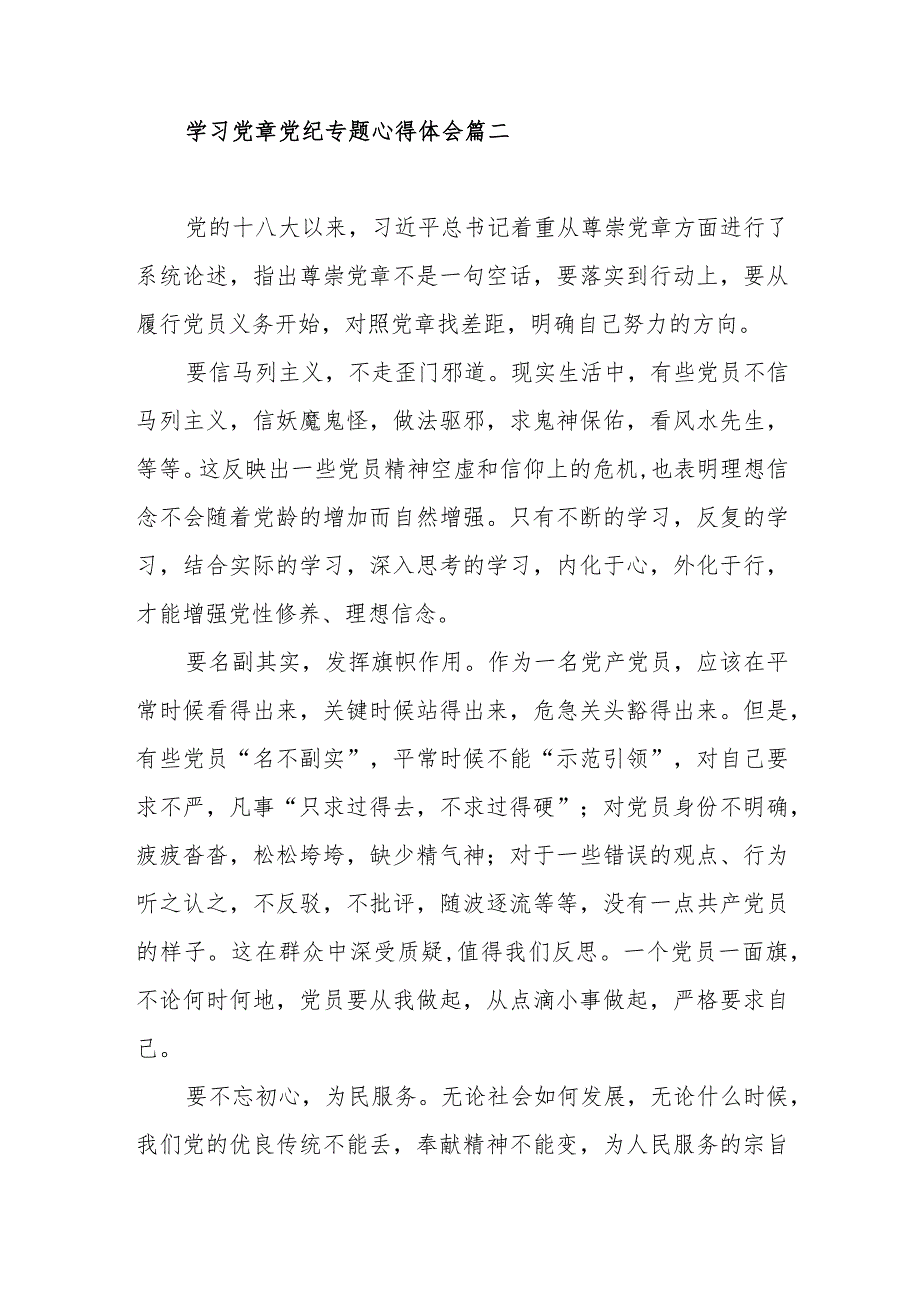 学习党章党纪专题心得体会篇二
党的十八大以来，习近平总书记着重从尊崇党章方面进行了
系统论述，指出尊崇党章不是一句空话，要落实到行动上，要从
履行党员义务开始，对照党章找差距，明确自己努力的方向。
要信马列主义，不走歪门邪道。现实生活中，有些党员不信
马列主义，信妖魔鬼怪，做法驱邪，求鬼神保佑，看风水先生，
等等。这反映出一些党员精神空虚和信仰上的危机,也表明理想信
念不会随着党龄的增加而自然增强。只有不断的学习，反复的学
习，结合实际的学习，深入思考的学习，内化于心，外化于行，
才能增强党性修养、理想信念。
要名副其实，发挥旗帜作用。作为一名党产党员，应该在平
常时候看得出来，关键时候站得出来，危急关头豁得出来。但是，
有些党员“名不副实”，平常时候不能“示范引领”，对自己要
求不严，凡事“只求过得去，不求过得硬”；对党员身份不明确，
疲疲沓沓，松松垮垮，缺少精气神；对于一些错误的观点、行为
听之认之，不反驳，不批评，随波逐流等等，没有一点共产党员
的样子。这在群众中深受质疑,值得我们反思。一个党员一面旗，
不论何时何地，党员要从我做起，从点滴小事做起，严格要求自
己。
要不忘初心，为民服务。无论社会如何发展，无论什么时候，
我们党的优良传统不能丢，奉献精神不能变，为人民服务的宗旨